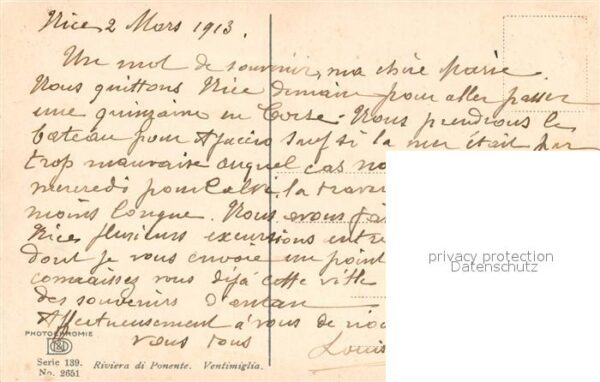 Nice 2 Mars 1913.
Un mot de souvenir, ma chère Marie.
Nous quittons Nice demain pour aller passer
une quinzaine en Corse. Nous prendrons le
bateau pour Ajaccio sauf si la mer était par
trop mauvaise auquel cas no
mercredi pour Calvi, la trave
moins longue. Nous avons fai
Nice plusieurs excursions entre
dont je vous envoie un point
connaissez vous déjà cette ville
des souvenirs d'antan
Affectueusement à vous de
vous tous
Louis
privacy protection
Datenschutz
PHOTOCHROMIE
Serie 139. Riviera di Ponente. Ventimiglia.
No. 2651